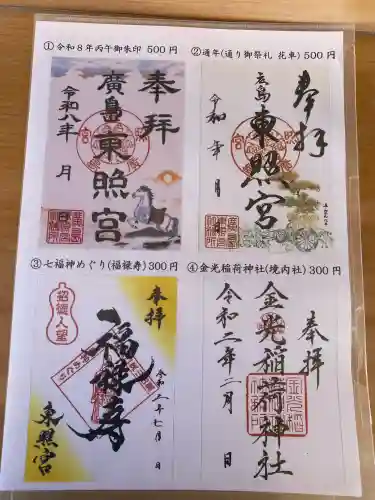 ①令和8年丙午御朱印 500円
奉拝
廣島東照宮
令和八年 月 日
②通年(通り御祭礼 花車)500円
奉拝
広島東照宮
令和 年 月 日
③七福神めぐり(福禄寿)300円
奉拝
招徳人望
福禄寿
令和三年七月 日
東照宮
④金光稲荷神社(境内社)300円
奉拝
金光稲荷神社
令和二年二月 日